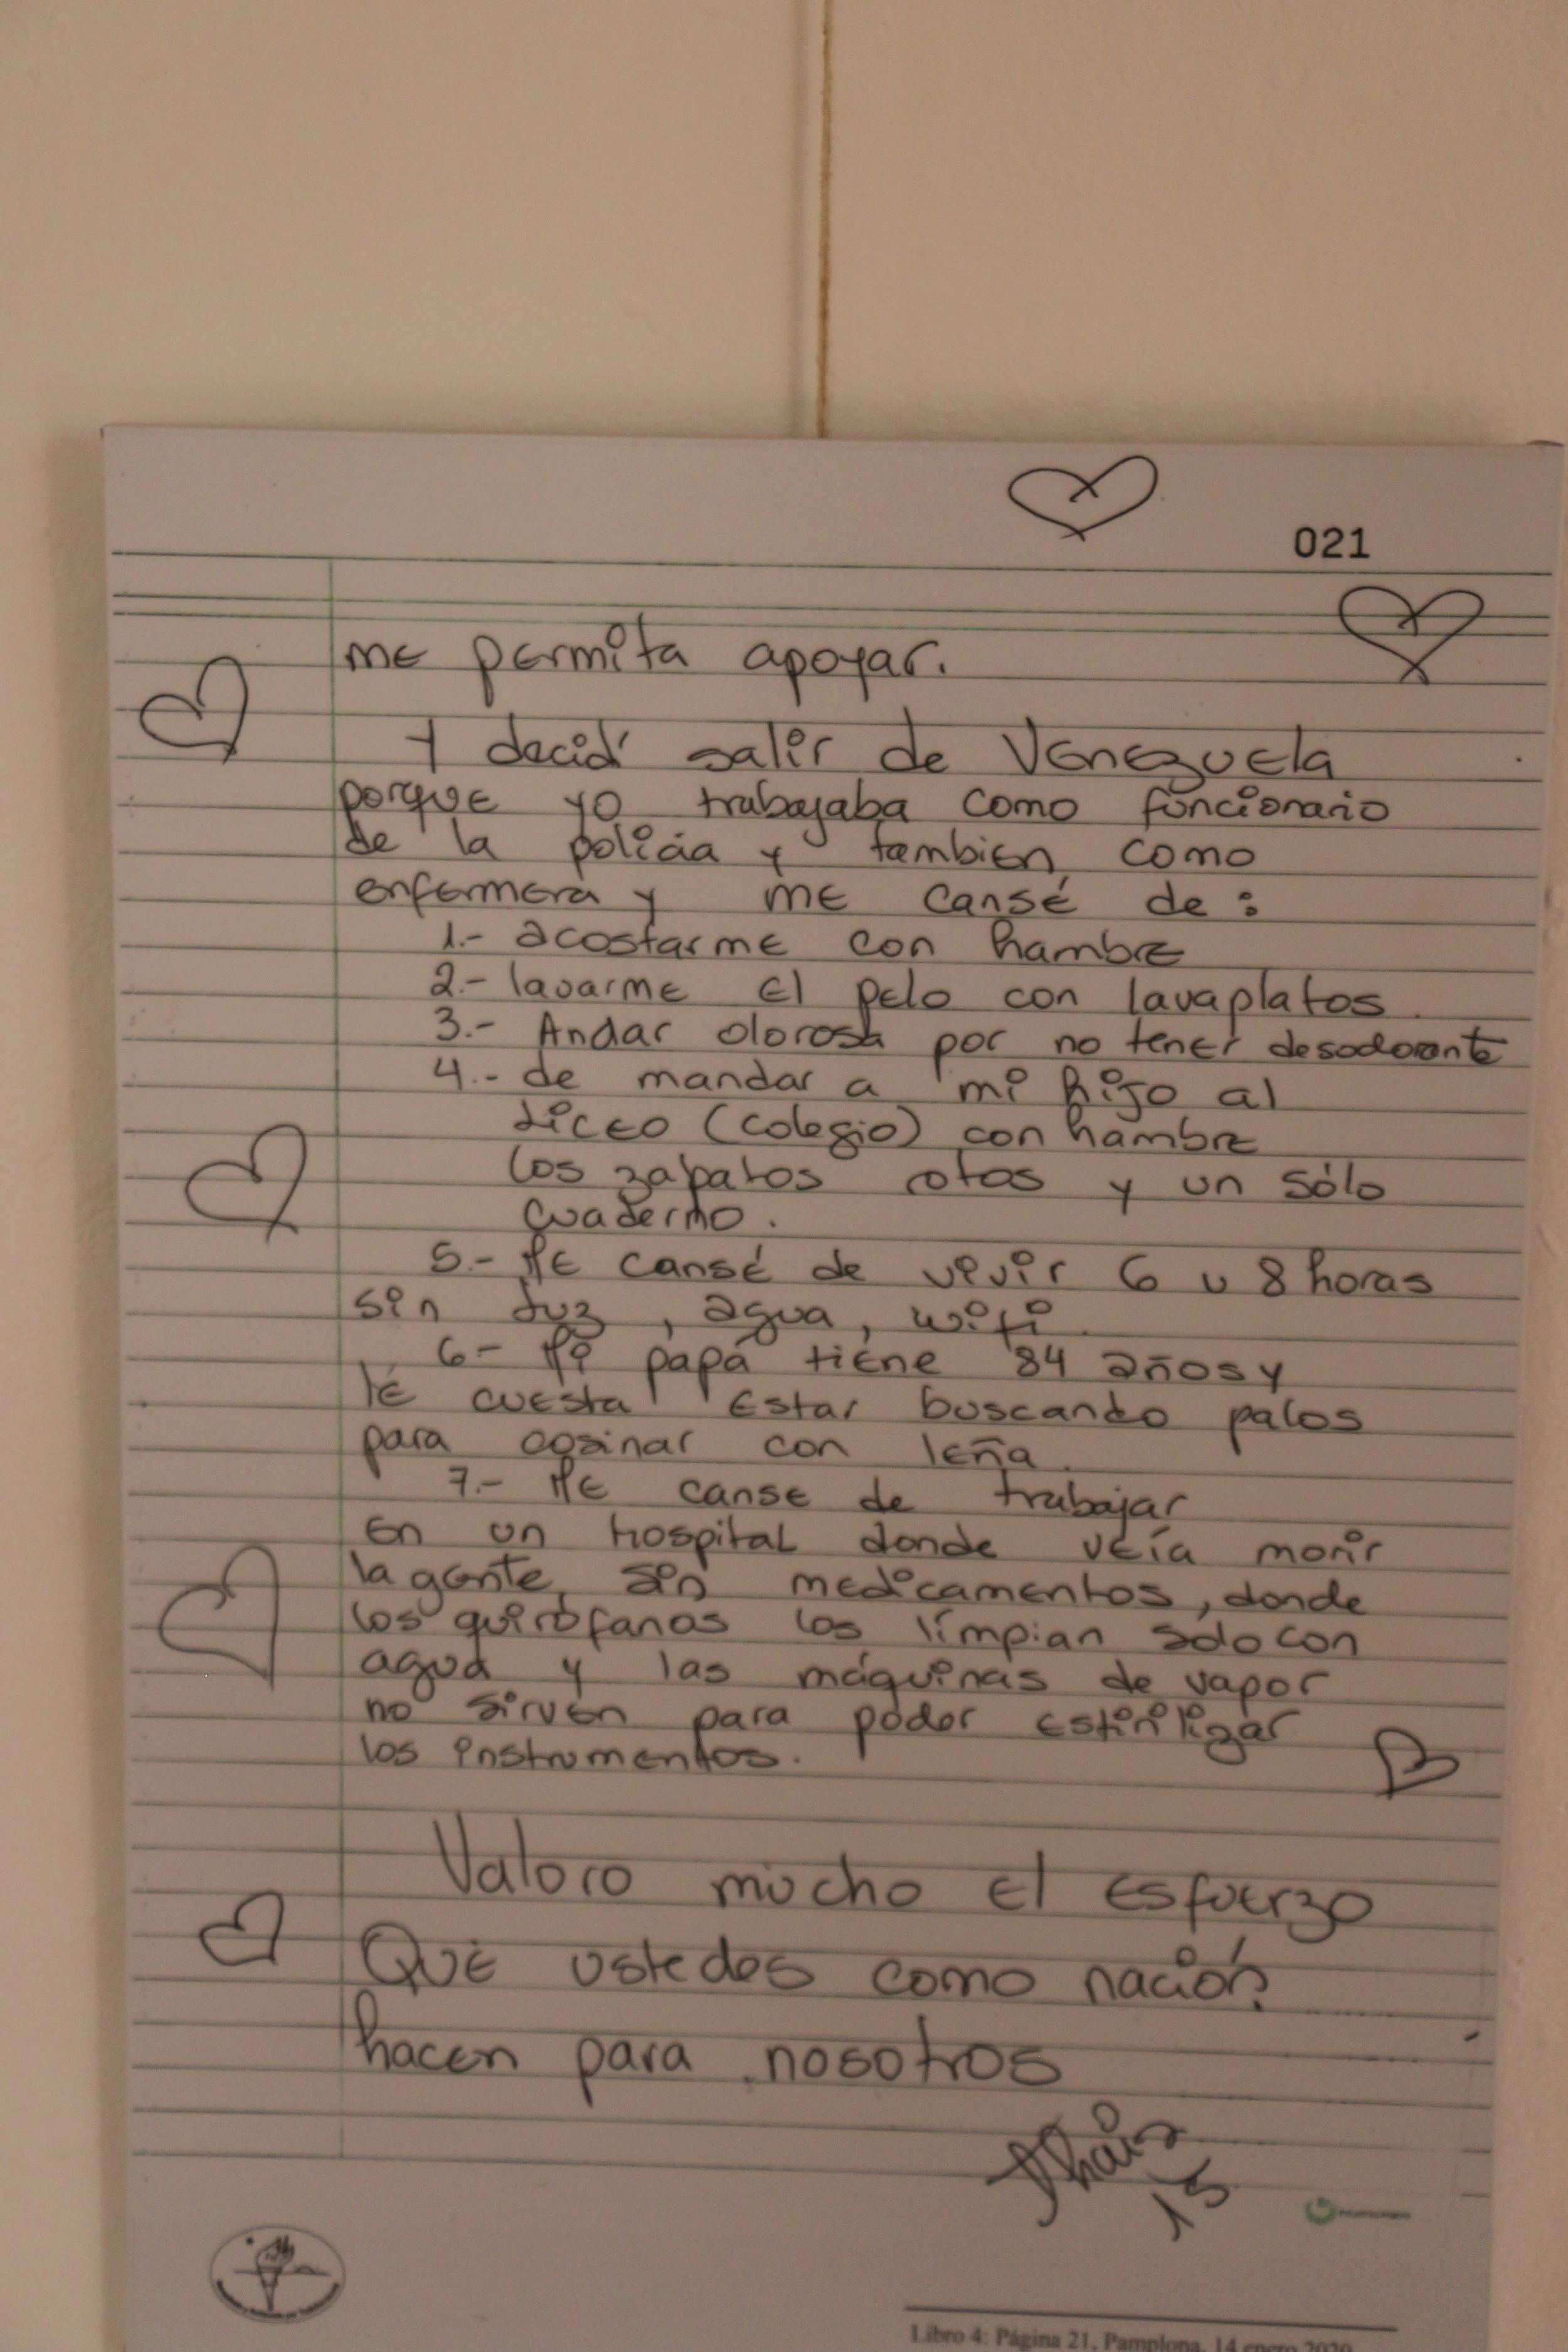 021
me permita apoyar.
Y decidí salir de Venezuela
porque yo trabajaba como funcionario
de la policia y tambien como
enfermera y me cansé de:
1.- acostarme con hambre
2.- lavarme el pelo con lavaplatos.
3.- Andar olorosa por no tener desodorante
4.- de mandar a mi hijo al
Liceo (colegio) con hambre
los zapatos rotos y un sólo
cuaderno.
5.- Me cansé de vivir 6 u 8 horas
sin luz, agua, wifi.
6- Mi papá tiene 84 años y
le cuesta estar buscando palos
para cosinar con leña.
7.- Me canse de trabajar
en un hospital donde veía morir
la gente, sin medicamentos, donde
los quirófanos los límpian solo con
agua y las máquinas de vapor
no sirven para poder estirilizar
los instrumentos.
Valoro mucho el esfuerzo
Que ustedes como nación
hacen para nosotros
Thais
15
Libro 4: Página 21, Pamplona, 14 enero 2020